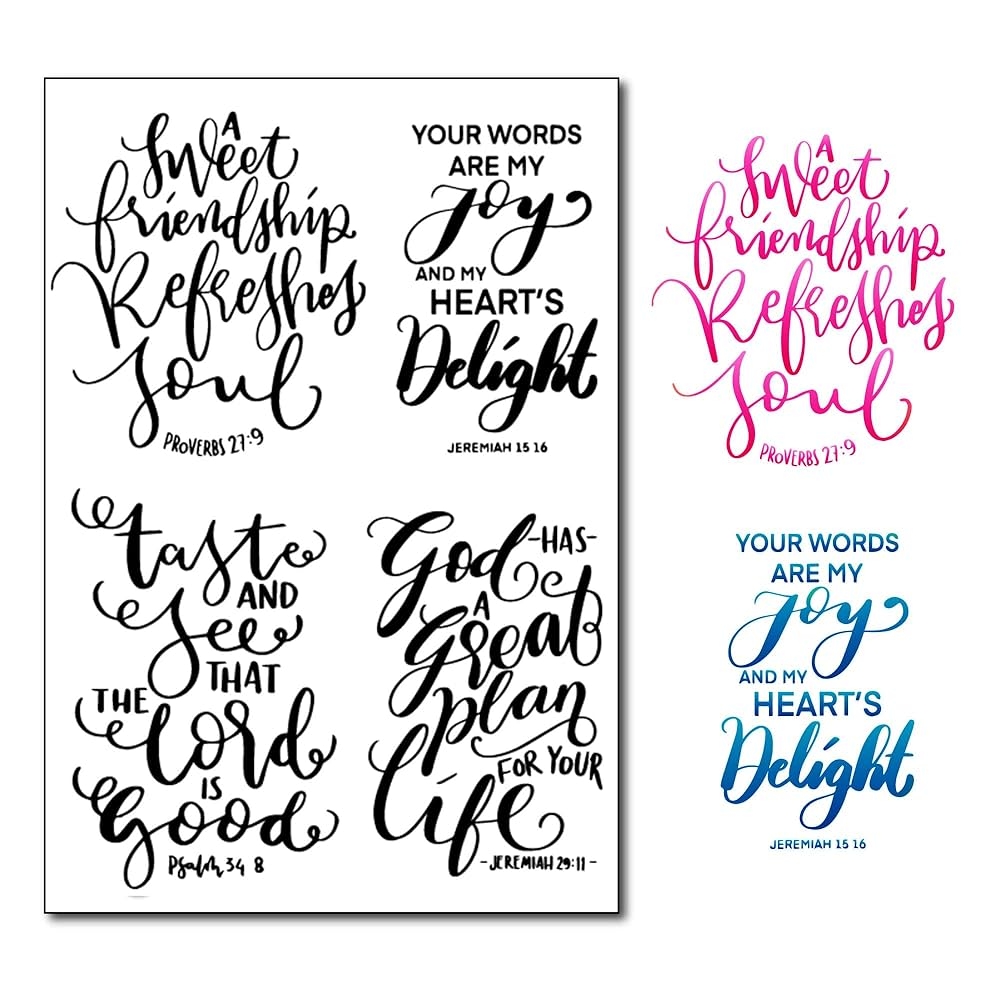 A
Sweet
friendship
Refreshes
Soul
PROVERBS 27:9
YOUR WORDS
ARE MY
Joy
AND MY
HEART'S
Delight
JEREMIAH 15 16
taste
AND
See
THAT
THE Lord
IS
Good
Psalm 34 8
God -HAS-
A
Great
plan
FOR YOUR
life
-JEREMIAH 29:11-
A
Sweet
friendship
Refreshes
Soul
PROVERBS 27:9
YOUR WORDS
ARE MY
Joy
AND MY
HEART'S
Delight
JEREMIAH 15 16